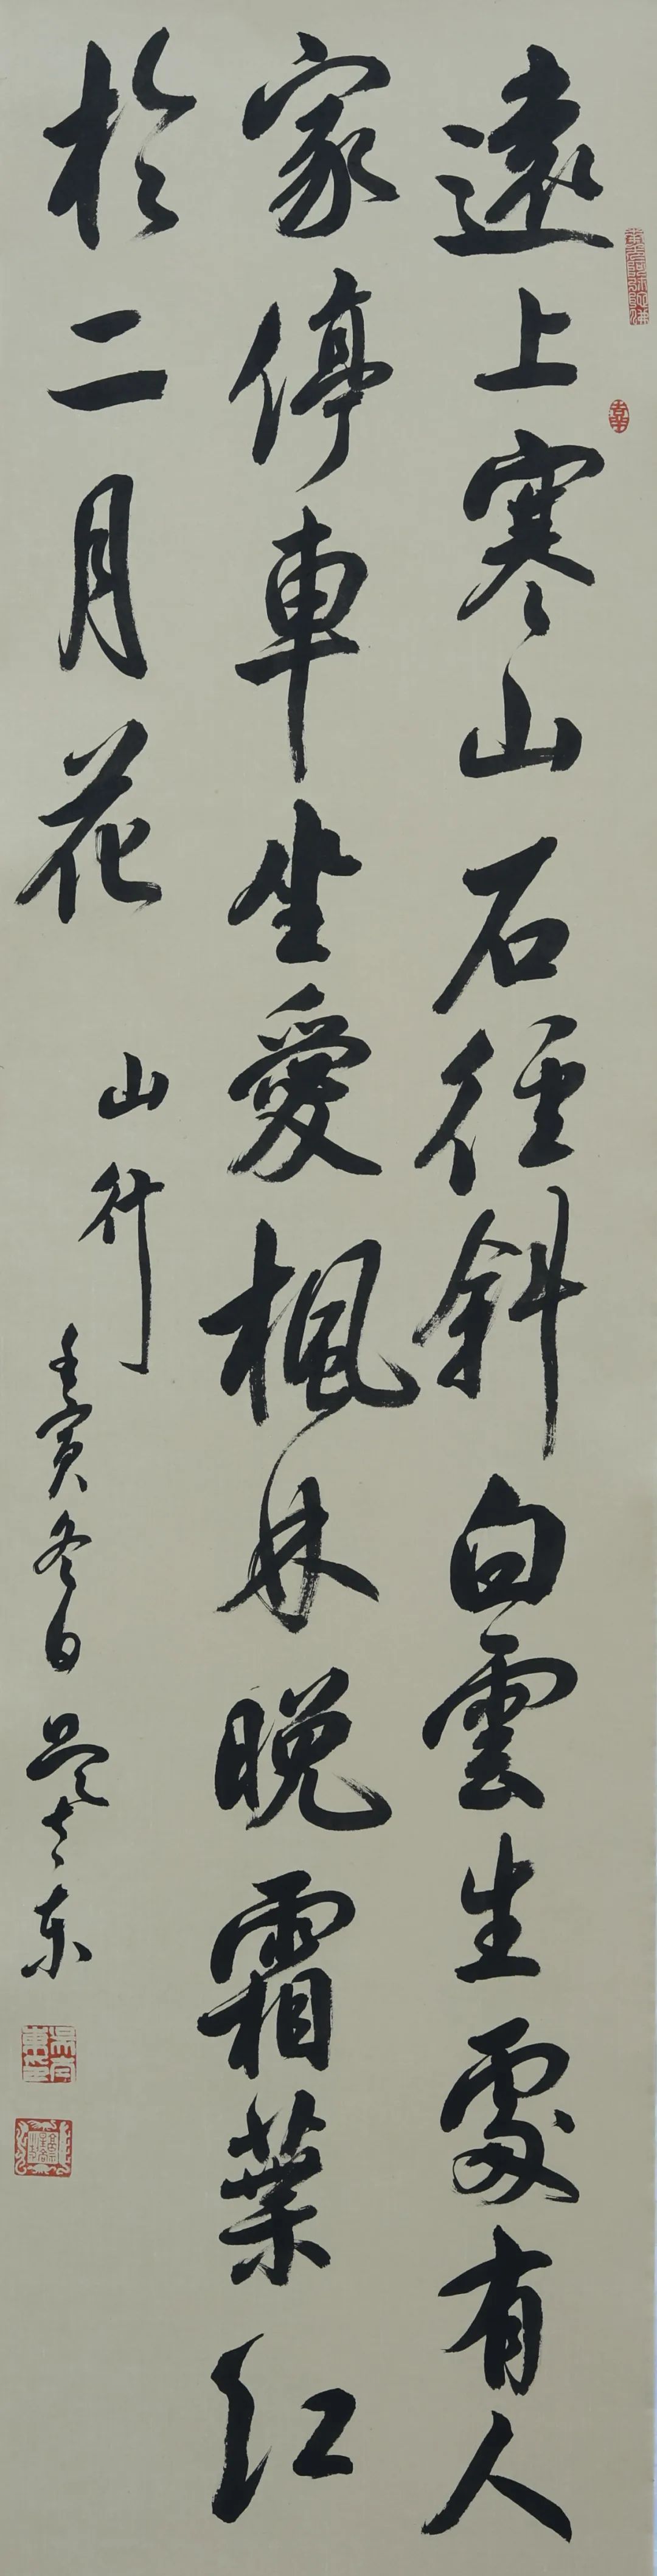 遠上寒山石徑斜白雲生處有人
家停車坐愛楓林晚霜葉紅
於二月花
山行
壬寅冬日吴士东